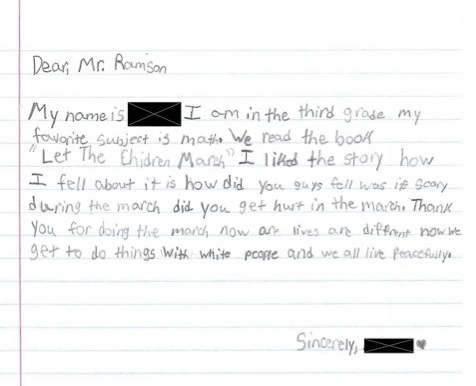 Dear, Mr. Ramson
My name is I am in the third grade my
favorite subject is math. We read the book
"Let The Chidren March" I liked the story how
I fell about it is how did you guys fell was it scary
during the march did you get hurt in the march. Thank
you for doing the march now are lives are diffrent now we
get to do things with white people and we all live peacefully.
Sincerely, ♥